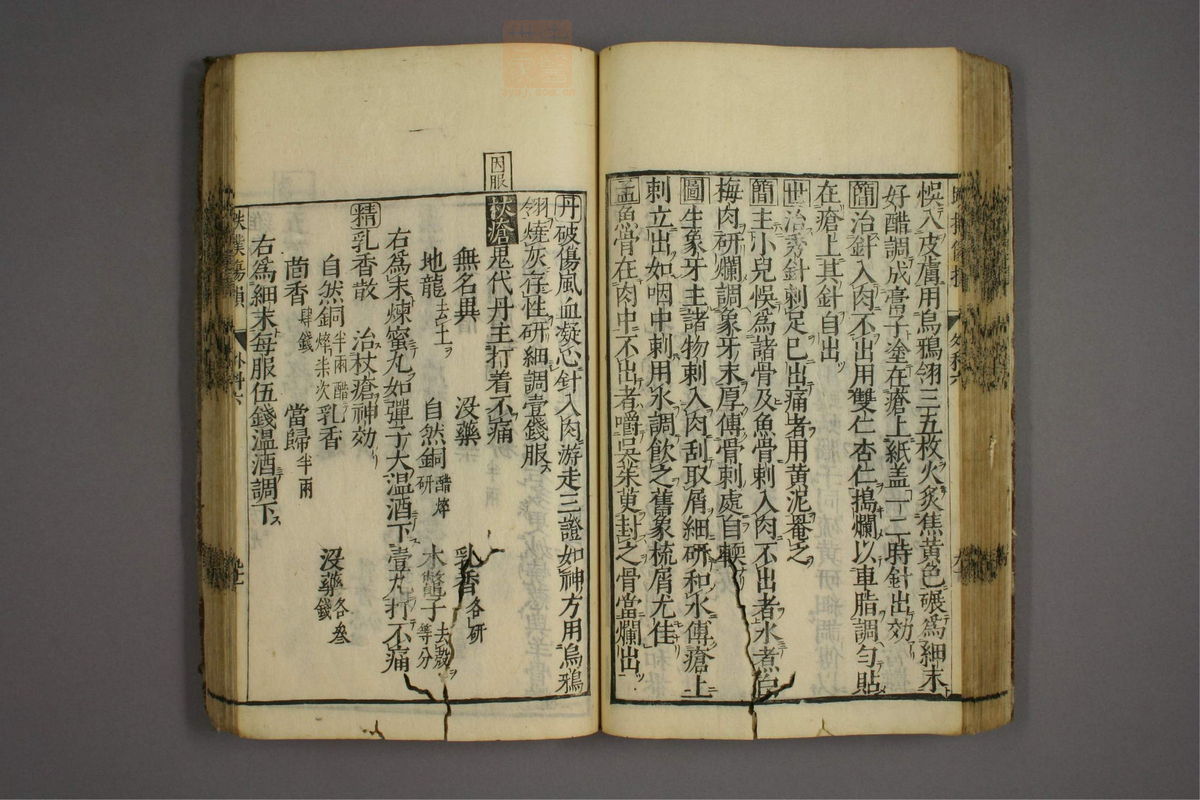 悞入皮膚用烏鴉翎三五枚火炙焦黄色碾爲細末
好醋調成膏子塗在瘡上紙盖一二時針出効
簡治針入肉不出用雙仁杏仁搗爛以車脂調勻貼
在瘡上其針自出
世治誘針刺足已出痛者用黄泥罨之
簡主小兒悞爲諸骨及魚骨刺入肉不出者水煮白
梅肉研爛調象牙末厚傅骨刺處自軟
圖生象牙主諸物刺入肉刮取屑細研和水傅瘡上
刺立出如咽中刺用水調飲之舊象梳屑尤佳
孟魚骨在肉中不出者嚼吴茱萸封之骨當爛出
丹破傷風血凝心針入肉游走三證如神方用烏鴉
翎燒灰存性研細調壹錢服
因服
杖瘡鬼代丹主打着不痛
無名異 没藥 乳香各研
地龍去土 自然銅醋焠研 木鼈子去殼等分
右爲末煉蜜丸如彈子大温酒下壹丸打不痛
精乳香散 治杖瘡神効
自然銅半兩醋焠柒次 乳香 没藥各叁錢
茴香肆錢 當歸半兩
右爲細末每服伍錢温酒調下
跌撲傷損 外科六